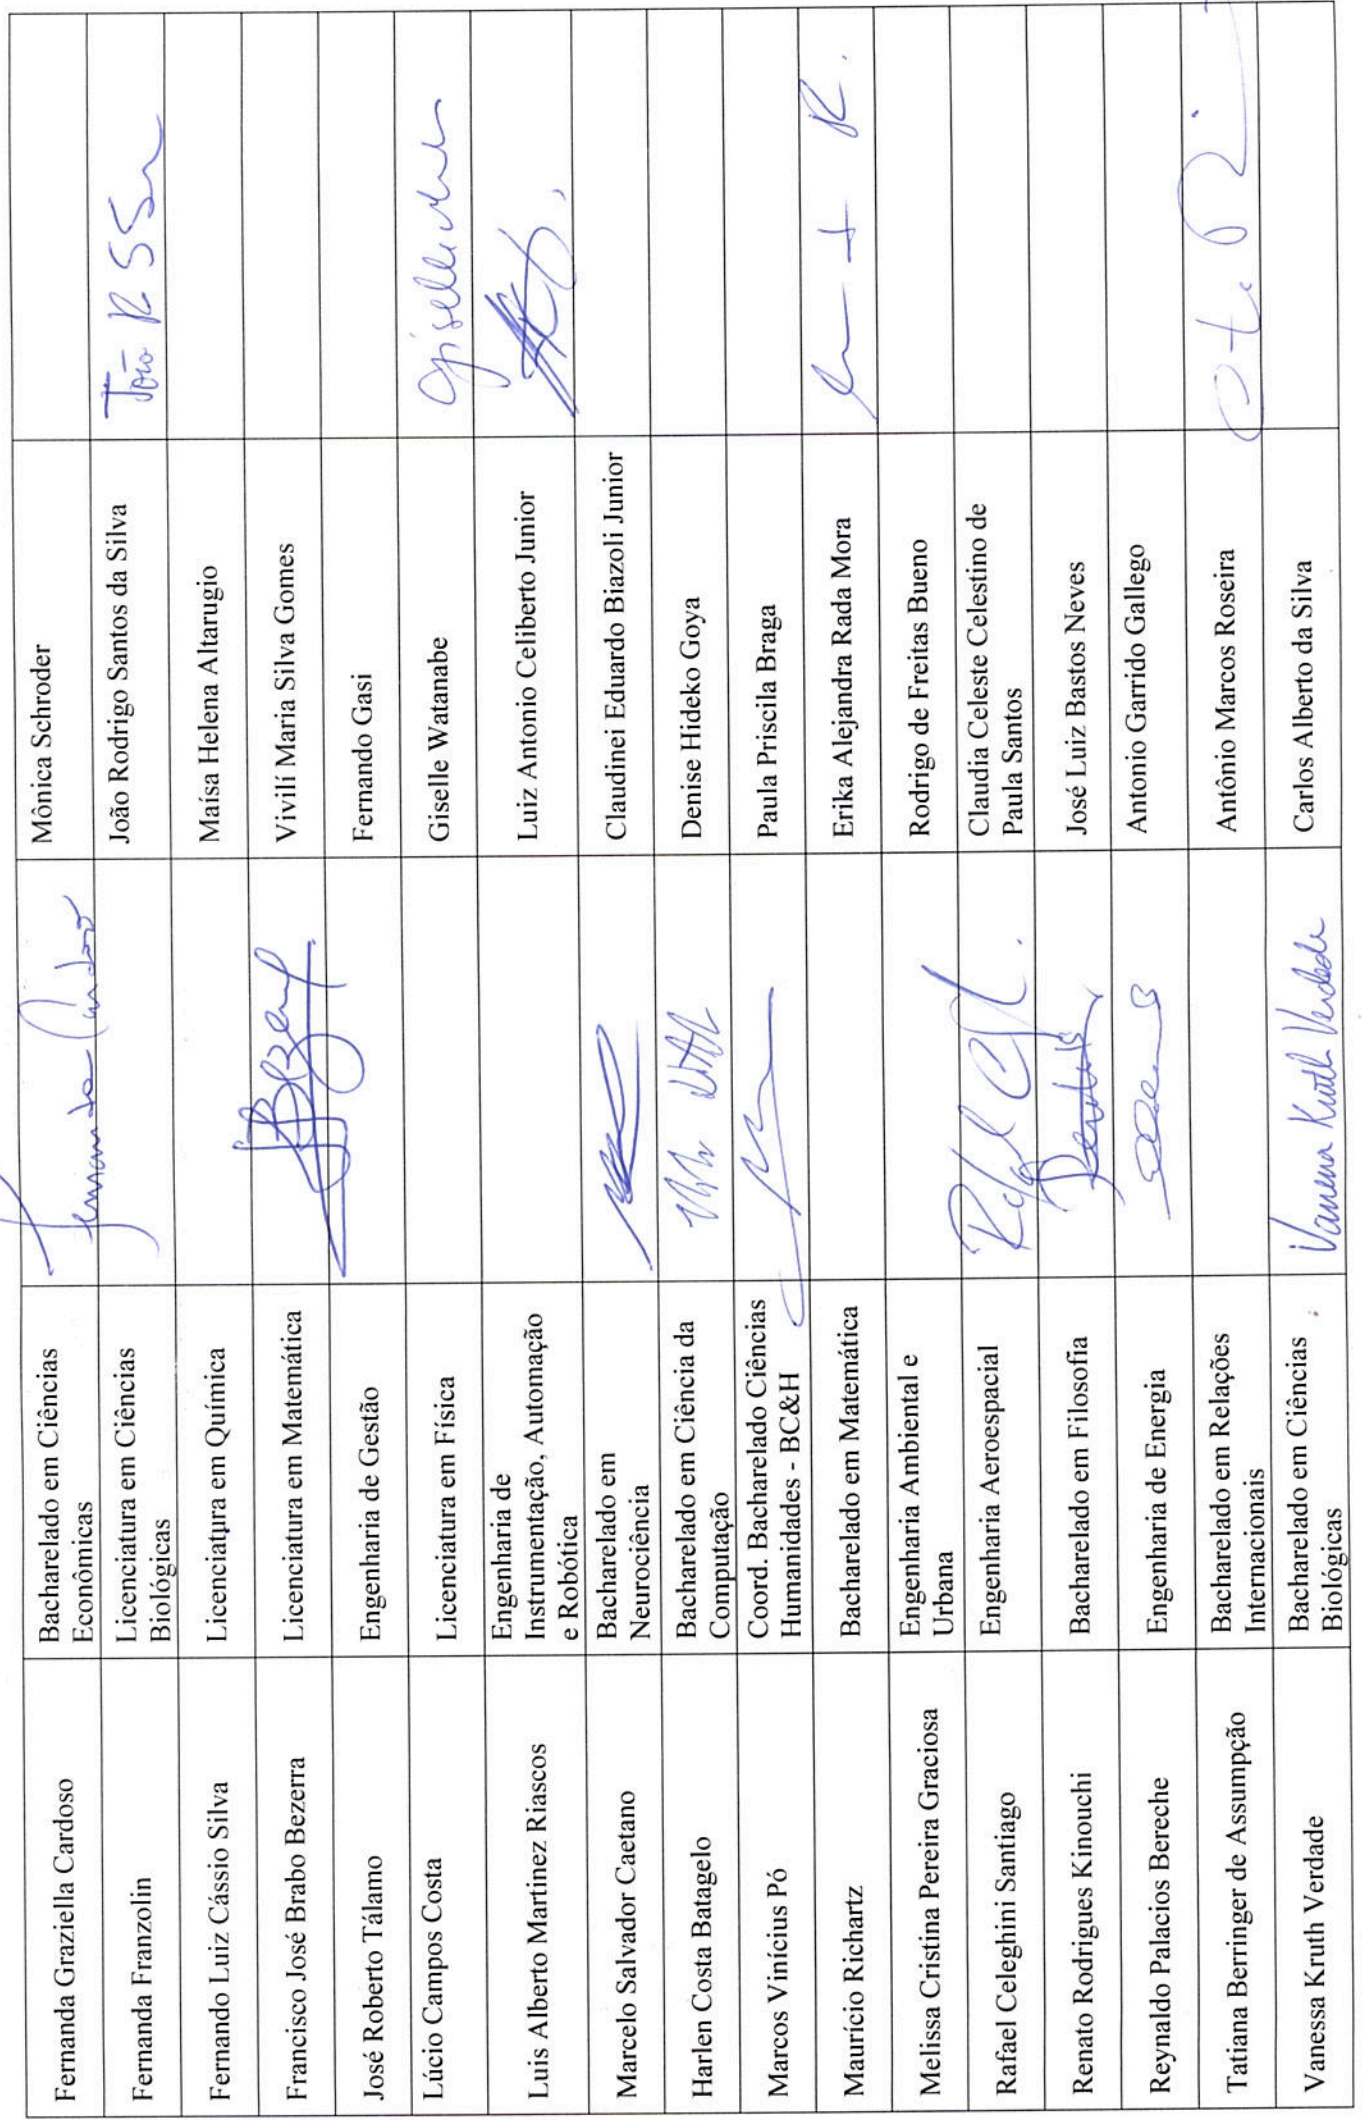 Fernanda Graziella Cardoso
Bacharelado em Ciências
Econômicas
Fernanda Cardoso
Mônica Schroder
Fernanda Franzolin
Licenciatura em Ciências
Biológicas
João Rodrigo Santos da Silva
João R S S
Fernando Luiz Cássio Silva
Licenciatura em Química
Maísa Helena Altarugio
Francisco José Brabo Bezerra
Licenciatura em Matemática
Vivilí Maria Silva Gomes
José Roberto Tálamo
Engenharia de Gestão
Fernando Gasi
Lúcio Campos Costa
Licenciatura em Física
Giselle Watanabe
Luis Alberto Martinez Riascos
Engenharia de
Instrumentação, Automação
e Robótica
Luiz Antonio Celiberto Junior
Marcelo Salvador Caetano
Bacharelado em
Neurociência
Claudinei Eduardo Biazoli Junior
Harlen Costa Batagelo
Bacharelado em Ciência da
Computação
Denise Hideko Goya
Marcos Vinícius Pó
Coord. Bacharelado Ciências
Humanidades - BC&H
Paula Priscila Braga
Maurício Richartz
Bacharelado em Matemática
Erika Alejandra Rada Mora
Melissa Cristina Pereira Graciosa
Engenharia Ambiental e
Urbana
Rodrigo de Freitas Bueno
Rafael Celeghini Santiago
Engenharia Aeroespacial
Claudia Celeste Celestino de
Paula Santos
Renato Rodrigues Kinouchi
Bacharelado em Filosofia
José Luiz Bastos Neves
Reynaldo Palacios Bereche
Engenharia de Energia
Antonio Garrido Gallego
Tatiana Berringer de Assumpção
Bacharelado em Relações
Internacionais
Antônio Marcos Roseira
Vanessa Kruth Verdade
Bacharelado em Ciências
Biológicas
Vanessa Kruth Verdade
Carlos Alberto da Silva